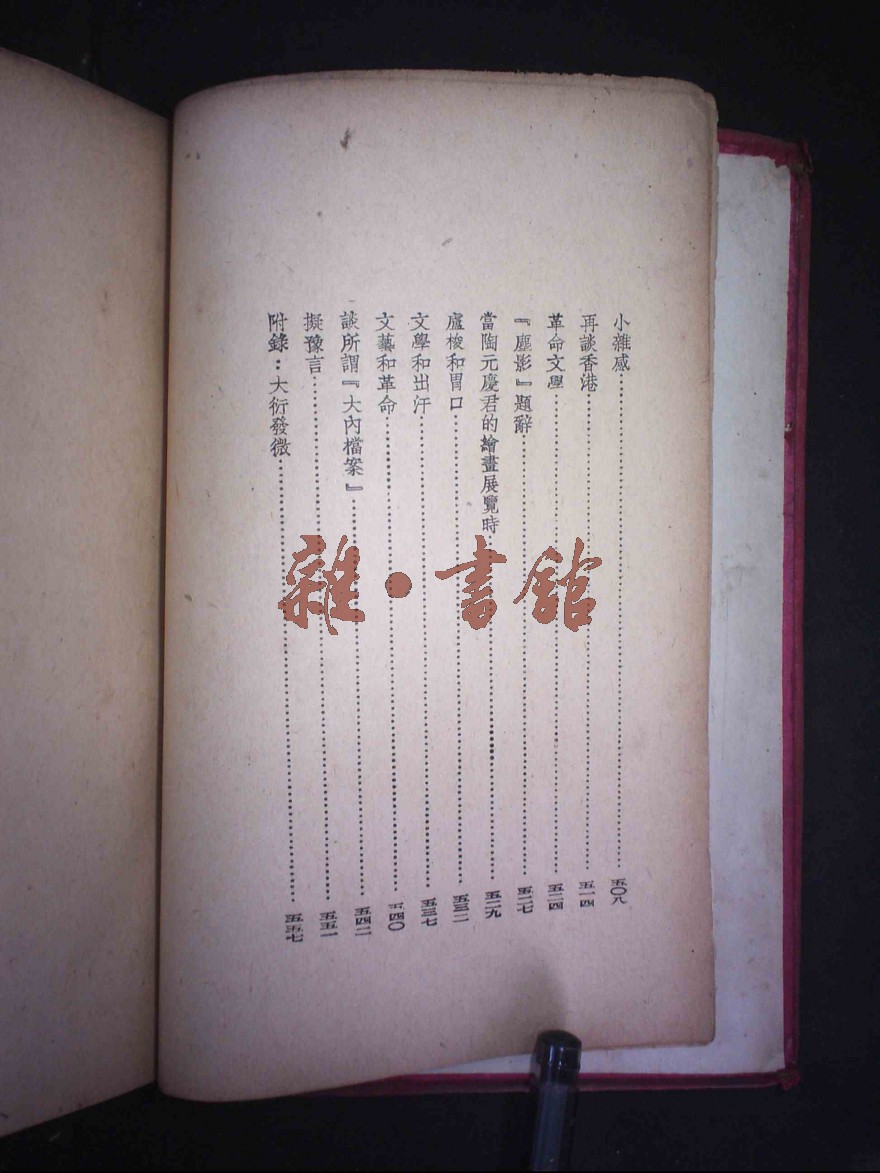 小雜感……五〇八
再談香港……五一四
革命文學……五二四
『塵影』題辭……五二七
當陶元慶君的繪畫展覽時……五二九
盧梭和胃口……五三二
文學和出汗……五三七
文藝和革命……五四〇
談所謂『大內檔案』……五四二
擬豫言……五五一
附錄：大衍發微……五五七
雜·書館